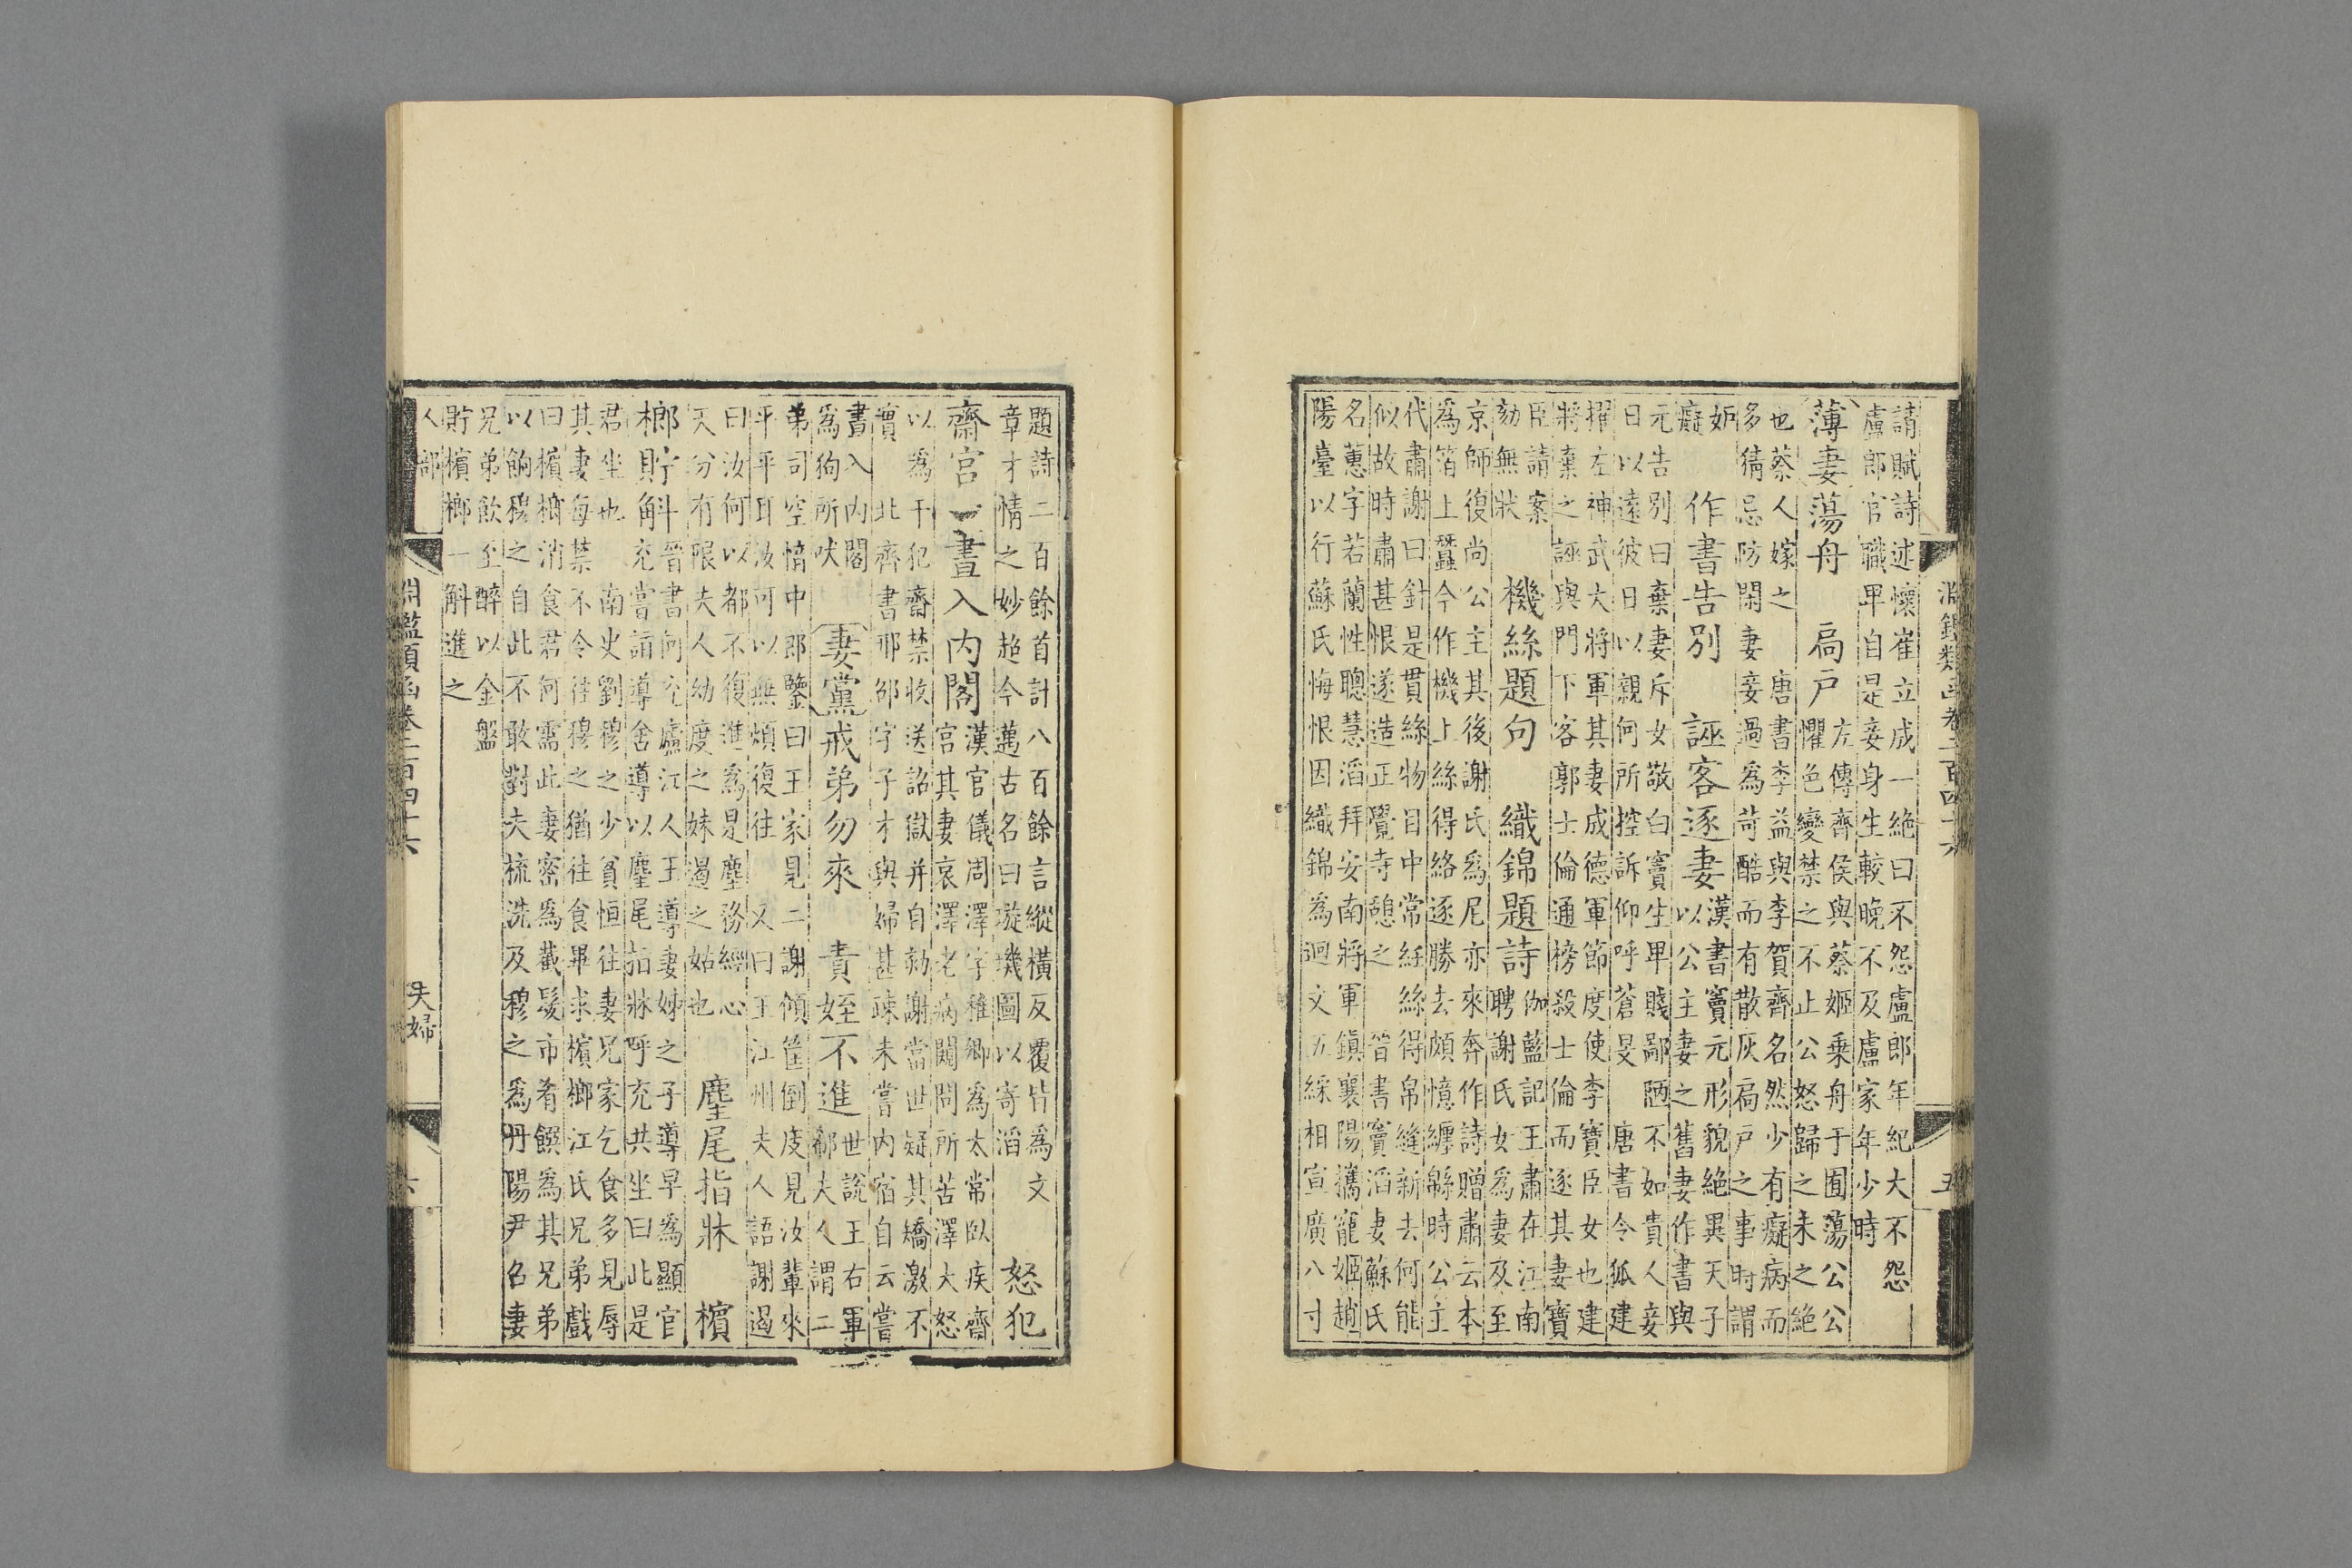 淵鑑類函卷二百四十六
五
請賦詩述懷崔立成一絶曰不怨盧郎年紀大不怨
盧郎官職卑自是妾身生較晚不及盧家年少時
薄妻蕩舟　扃戶
左傳齊侯與蔡姬乗舟于囿蕩公公
懼色變禁之不止公怒歸之未之絶
也蔡人嫁之　唐書李益與李賀齊名然少有癡病而
多猜忌防閑妻妾過為苛酷而有散灰扃戶之事時謂
妬
癡
作書告別　誣客逐妻
漢書竇元形貌絶異天子
以公主妻之舊妻作書與
元告別曰棄妻斥女敬白竇生卑賤鄙陋不如貴人妾
日以遠彼日以親何所控訴仰呼蒼旻　唐書令狐建
擢左神武大將軍其妻成德軍節度使李寶臣女也建
將棄之誣與門下客郭士倫通榜殺士倫而逐其妻寶
臣請案
劾無狀
機絲題句　織錦題詩
伽藍記王肅在江南
聘謝氏女為妻及至
京師復尚公主其後謝氏為尼亦來奔作詩贈肅云本
為箔上蠶今作機上絲得絡逐勝去頗憶纏緜時公主
代肅謝曰針是貫絲物目中常紝絲得帛縫新去何能
似故時肅甚恨遂造正覺寺憩之　晉書竇滔妻蘇氏
名蕙字若蘭性聰慧滔拜安南將軍鎮襄陽攜寵姬趙
陽臺以行蘇氏悔恨因織錦為迴文五綵相宣廣八寸
題詩二百餘首計八百餘言縱橫反覆皆為文
章才情之妙超今邁古名曰璇璣圖以寄滔
怒犯
齋宮　晝入内閣
漢官儀周澤字穉卿為太常臥疾齋
宮其妻哀澤老病闚問所苦澤大怒
以為干犯齋禁收送詔獄并自劾謝當世疑其矯激不
實　北齊書邢邵字子才與婦甚疎未嘗内宿自云嘗
晝入内閣
為狗所吠
妻黨戒弟勿來　責姪不進
世說王右軍
郗夫人謂二
弟司空愔中郎鑒曰王家見二謝傾筐倒庋見汝輩來
平平耳汝可以無煩復往　又曰王江州夫人語謝遏
曰汝何以都不復進為是塵務經心
天分有限夫人幼度之妹遏之姑也
麈尾指牀　檳
榔貯斛
晉書何充廬江人王導妻姊之子導早為顯官
充嘗詣導舍導以麈尾指牀呼充共坐曰此是
君坐也　南史劉穆之少貧恒往妻兄家乞食多見辱
其妻每禁不令往穆之猶往食畢求檳榔江氏兄弟戲
曰檳榔消食君何需此妻密為截髮市肴饌為其兄弟
以餉穆之自此不敢對夫梳洗及穆之為丹陽尹召妻
兄弟飲至醉以金盤
貯檳榔一斛進之
人部
淵鑑類函卷二百四十六
夫婦
六